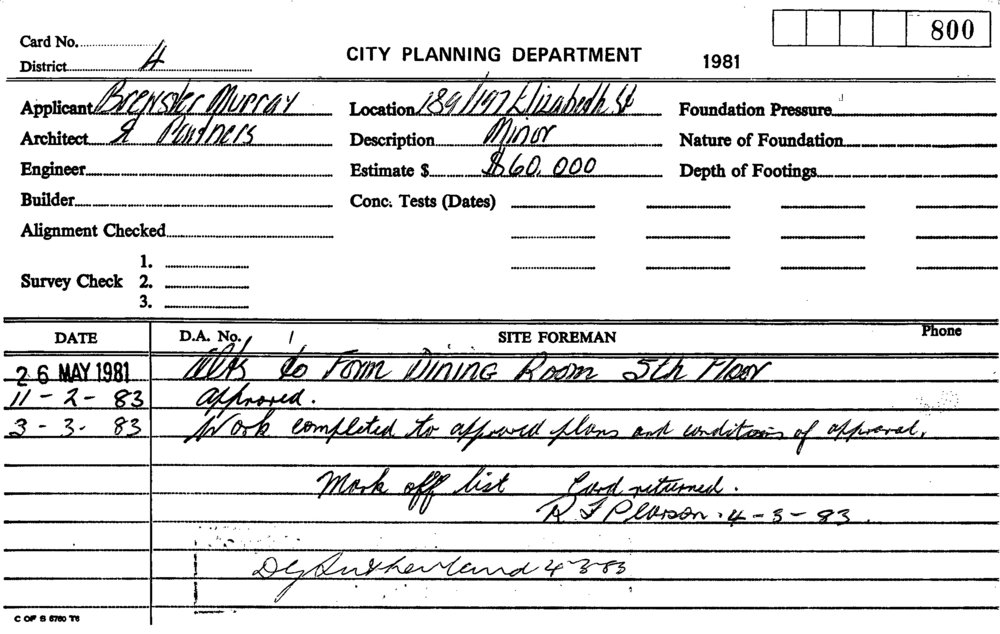 800
Card No.
CITY PLANNING DEPARTMENT 1981
District 4
Applicant Brewster Murray Location 189/197 Elizabeth St Foundation Pressure
Architect & Partners Description Minor Nature of Foundation
Engineer Estimate $ $60,000 Depth of Footings
Builder Conc. Tests (Dates)
Alignment Checked
1.
Survey Check 2.
3.
DATE D.A. No. SITE FOREMAN Phone
26 MAY 1981 Alts to Form Dining Room 5th Floor
11-2-83 approved.
3-3-83 Work completed to approved plans and conditions of approval.
Mark off list Card returned.
R F Pearson. 4-3-83.
DG Sutherland 4-3-83
C OF S 5760 T6